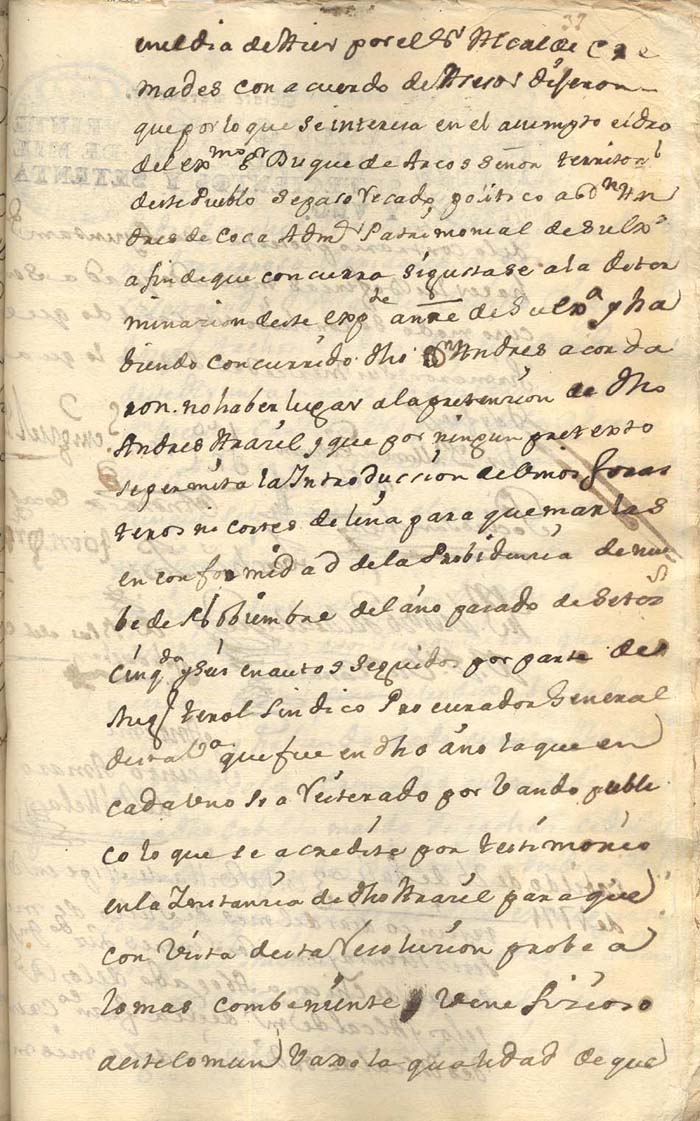 37
en el dia de Aier por el Sr Alcalde Cre
mades con acuerdo de Asesor dijeron
que por lo que se interesa en el asumpto el dro
del exmo Sr Duque de Arcos señor territoral
deste Pueblo se paso Recado politico a Dn An
dres de Coca Admr Patrimonial de Su exa
a fin de que concurra si gustase a la deter
minacion deste expte anre de Su exa y ha
biendo concurrido dho Dn Andres acorda
ron no haber lugar a la pretencion de dho
Andres Araril y que por ningun pretexto
se permita la Introduccion de binos foras
teros ni cortes de leña para quemarlas
en conformidad de la Probidencia de nue
be de Nobiembre del año pasado de Setos
cinqta y seis en autos seguidos por parte de
Migl terol Sindico Procurador General
desta Va que fue en dho año la que en
cada uno se a Reiterado por Vando publi
co lo que se acredite por testimonio
en la Instancia de dho Araril para que
con Vista desta Resolucion probe a
lo mas combeniente y benefizioso
a este Comun Vaxo la qualidad de que